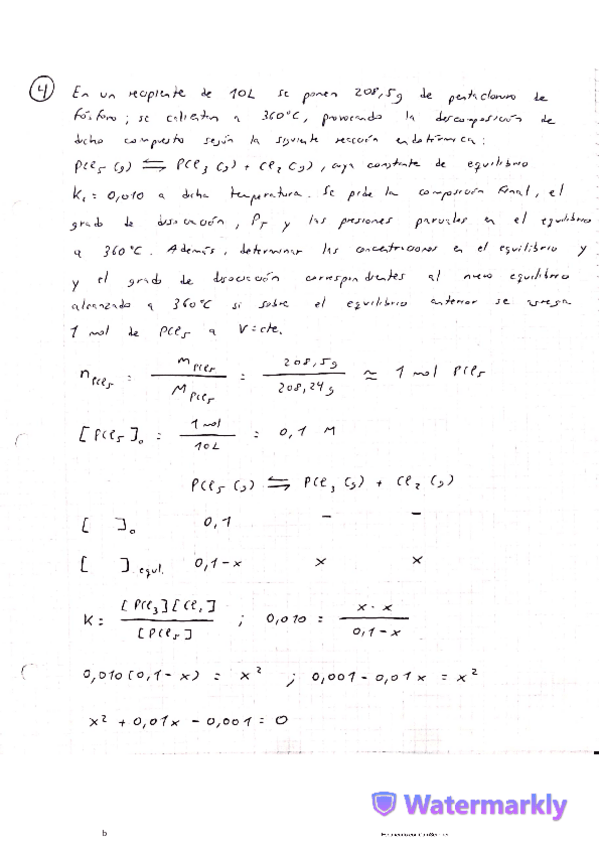 4 En un recipiente de 10L se ponen 208,5g de pentacloruro de
fósforo; se calientan a 360°C, provocando la descomposición de
dicho compuesto según la siguiente reacción endotérmica:
PCl5 (g) ⇆ PCl3 (g) + Cl2 (g), cuya constante de equilibrio
Kc = 0,010 a dicha temperatura. Se pide la composición final, el
grado de disociación, PT y las presiones parciales en el equilibrio
a 360°C. Además, determinar las concentraciones en el equilibrio y
y el grado de disociación correspondientes al nuevo equilibrio
alcanzado a 360°C si sobre el equilibrio anterior se agrega
1 mol de PCl5 a V=cte.
nPCl5 = mPCl5 / MPCl5 = 208,5g / 208,24g ≈ 1 mol PCl5
[PCl5]o = 1 mol / 10L = 0,1 M
PCl5 (g) ⇆ PCl3 (g) + Cl2 (g)
[ ]o 0,1 - -
[ ] equil. 0,1-x x x
K = [PCl3][Cl2] / [PCl5] ; 0,010 = x·x / 0,1-x
0,010(0,1-x) = x² ; 0,001-0,01x = x²
x² + 0,01x - 0,001 = 0
Watermarkly
b